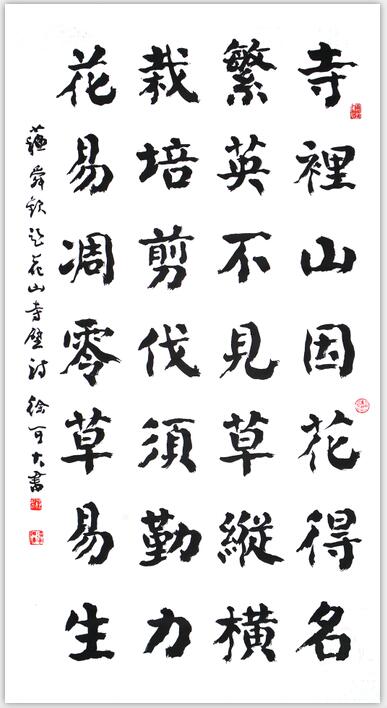 寺裡山因花得名
繁英不見草縱橫
栽培剪伐須勤力
花易凋零草易生
蘇舜欽題花山寺壁詩 徐可大書